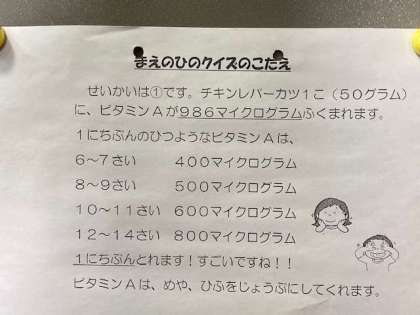 まえのひのクイズのこたえ
せいかいは①です。チキンレバーカツ1こ（50グラム）
に、ビタミンAが986マイクログラムふくまれます。
1にちぶんのひつようなビタミンAは、
6～7さい 400マイクログラム
8～9さい 500マイクログラム
10～11さい 600マイクログラム
12～14さい 800マイクログラム
1にちぶんとれます！すごいですね！！
ビタミンAは、めや、ひふをじょうぶにしてくれます。